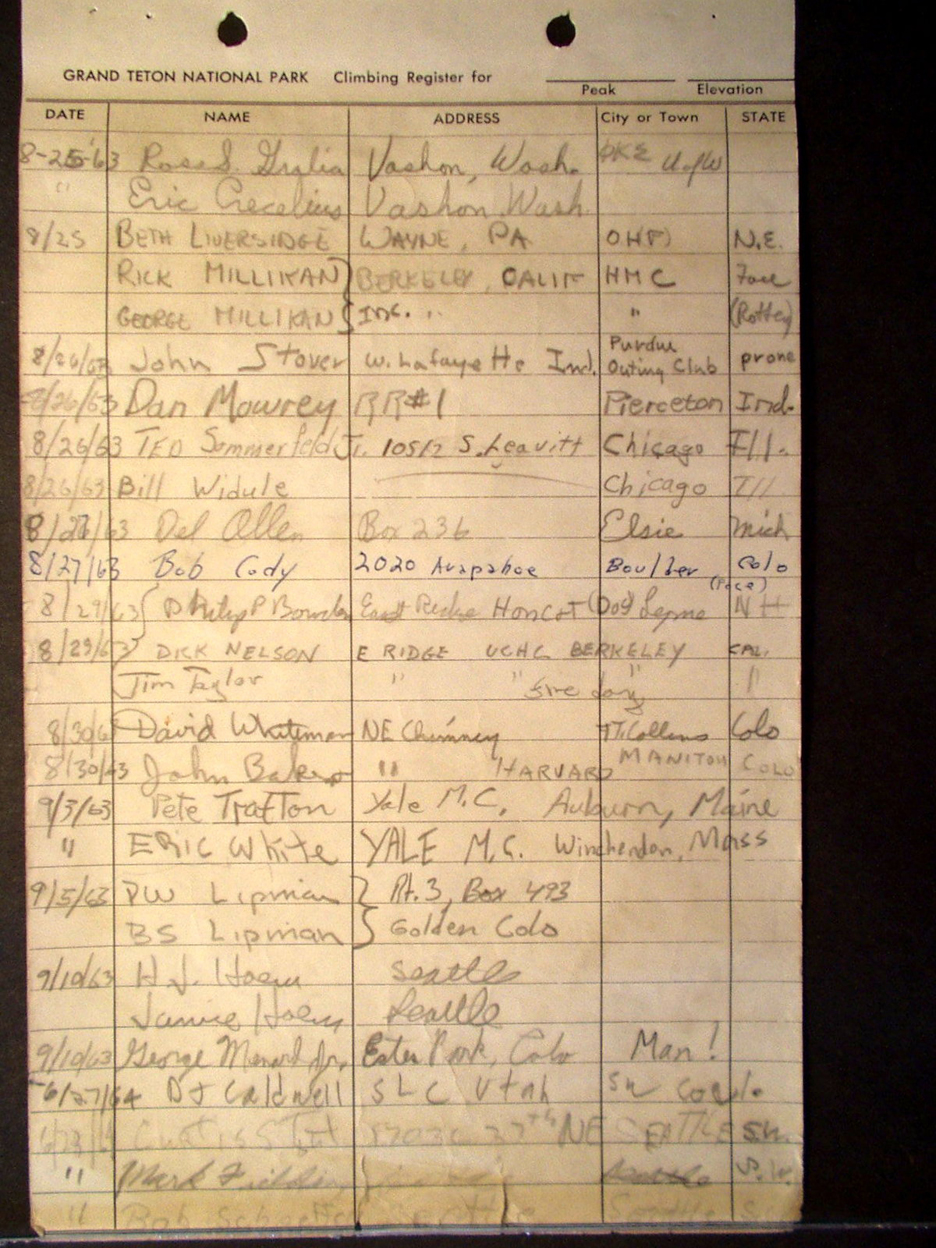 GRAND TETON NATIONAL PARK Climbing Register for
Peak Elevation
DATE NAME ADDRESS City or Town STATE
8-25-63 Ross Vashon, Wash. U of W
" Eric Crecelius Vashon Wash
8/25 BETH LIVERSIDGE WAYNE, PA N.E.
RICK MILLIKAN BERKELEY, CALIF HMC Face
GEORGE MILLIKAN INC. " (Rotten)
8/26/63 John Stover W. Lafayette Ind. Purdue Outing Club prone
8/26/63 Dan Mowrey RR#1 Pierceton Ind.
8/26/63 TED Sommerfeld Jr. S. Leavitt Chicago Ill.
8/26/63 Bill Widule Chicago Ill
8/26/63 Del Allen Box 236 Elsie Mich
8/27/63 Bob Cody 2020 Arapahoe Boulder Colo
8/29/63 Philip P East Ridge Lyme NH
8/29/63 DICK NELSON E RIDGE UCHC BERKELEY CAL.
Jim Taylor " " day "
8/30/63 David Whiteman NE Chimney Ft. Collins Colo
8/30/63 John Baker " "HARVARD MANITOU COLO
9/3/63 Pete Trafton Yale M.C. Auburn, Maine
" ERIC White YALE M.C. Winchendon, Mass
9/5/63 DW Lipman Rt. 3, Box 493
BS Lipman Golden Colo
9/10/63 H.J. Seattle
Janice Seattle
9/10/63 George Menard Jr. Estes Park, Colo Man!
6/27/64 DJ Caldwell SLC Utah SW
NE SEATTLE S.W.
" Mark Fielding Seattle S.W.
" Bob Seattle Seattle